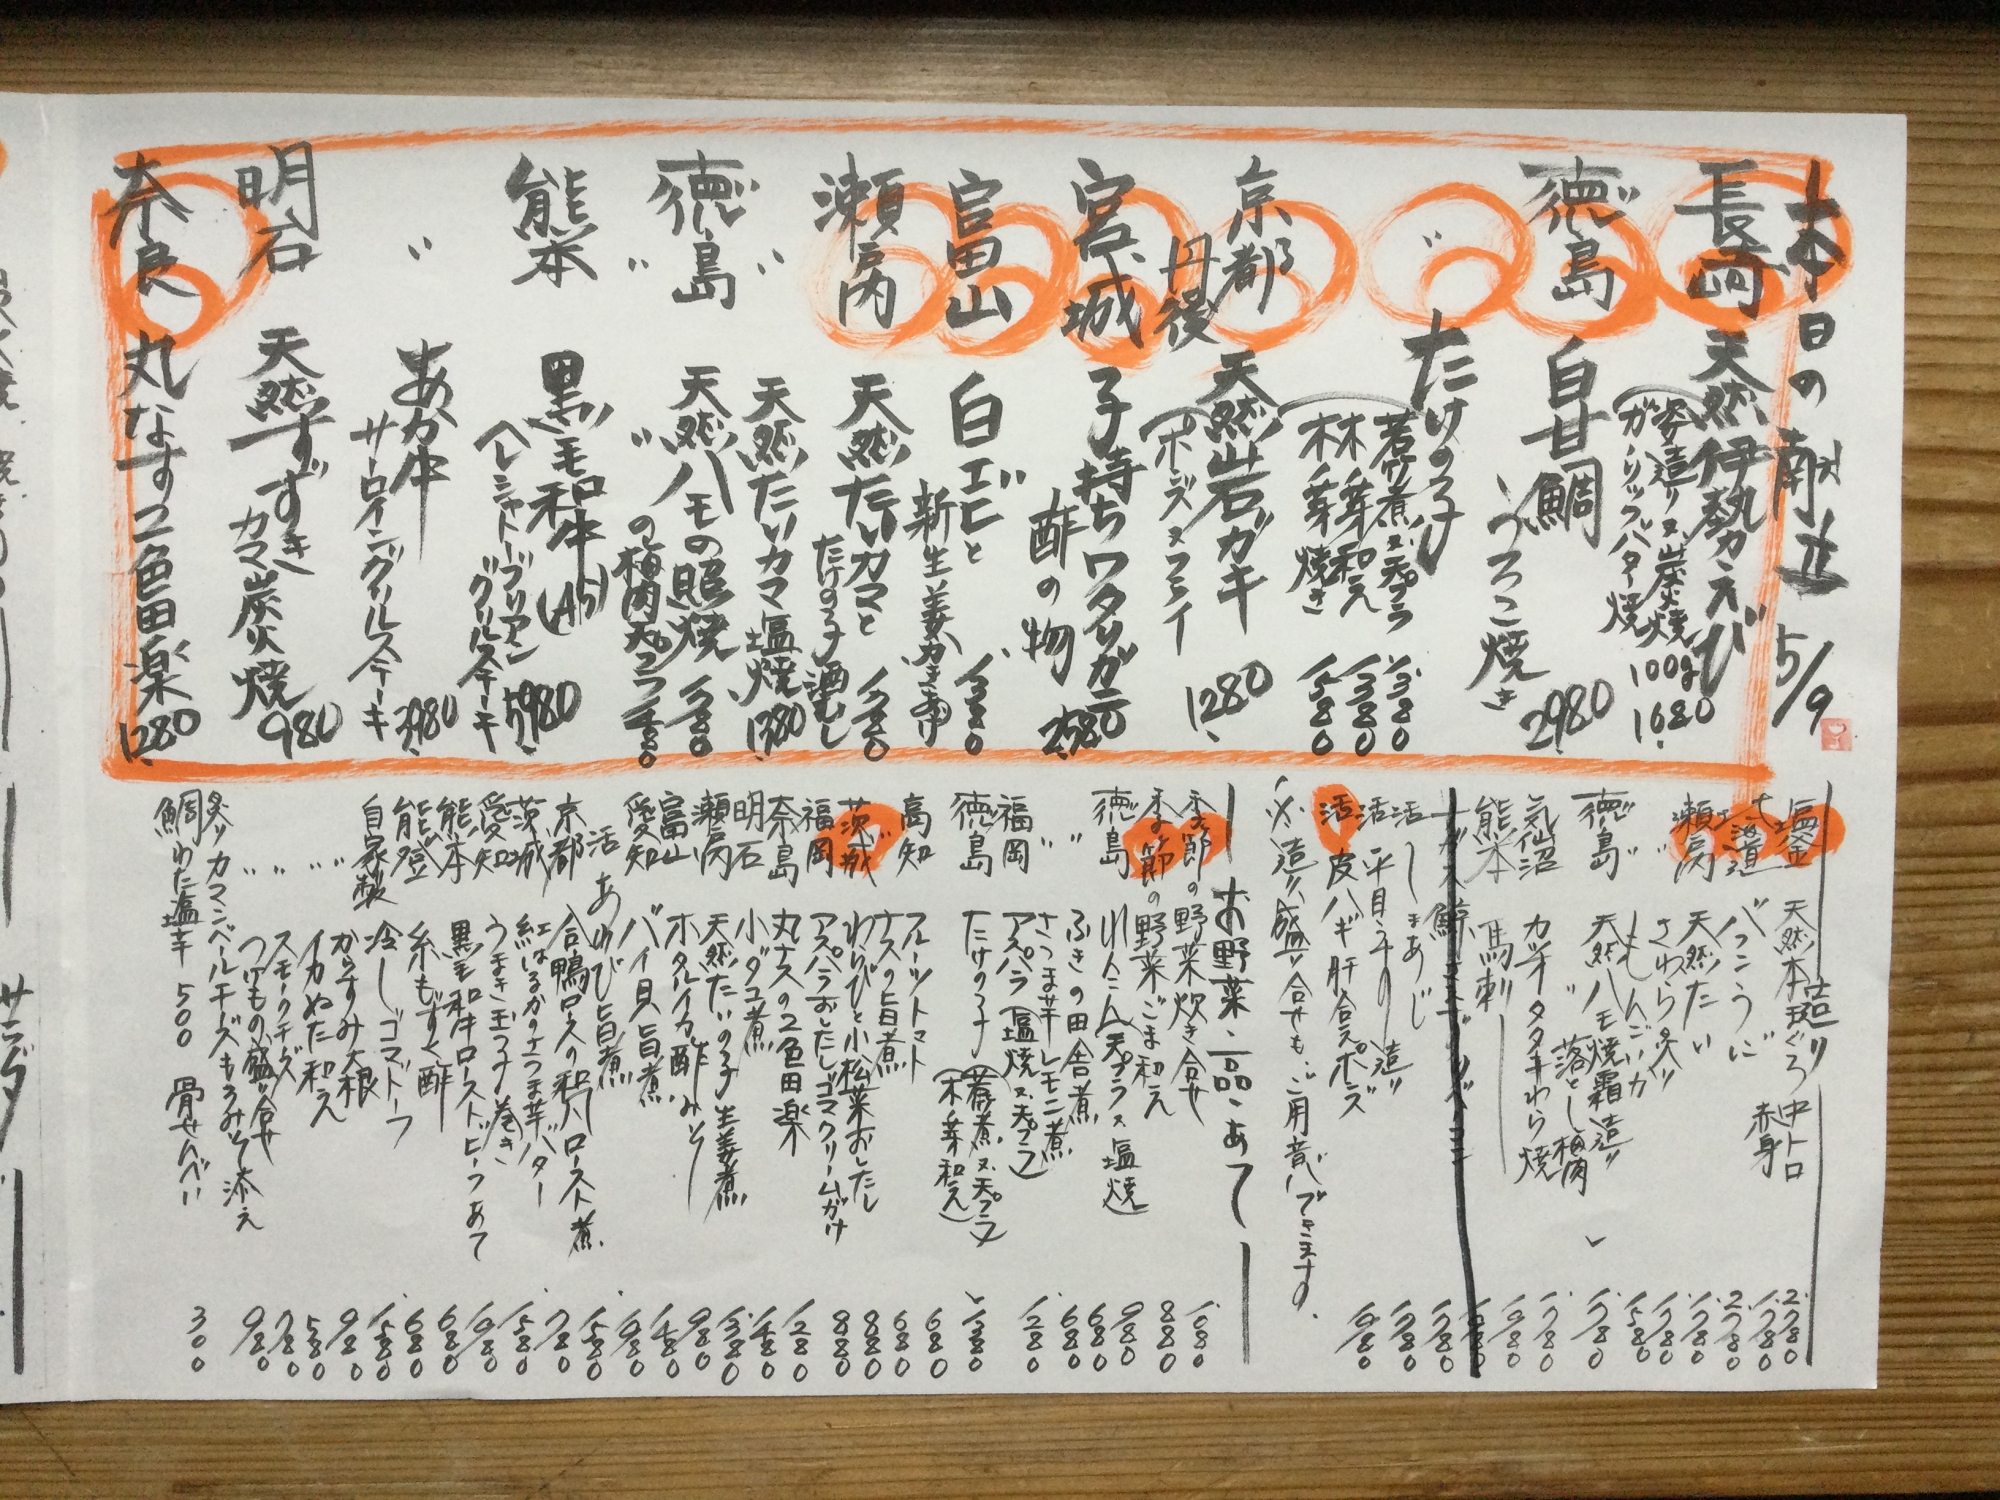 本日の献立 5/9
長崎 天然伊勢カえび
姿造り又炭火焼 100g
ガーリックバター焼 1680
徳島 白甘鯛
うろこ焼き 2980
〃 たけの子
若竹煮又天プラ 1380
木ノ芽和え 1380
木ノ芽焼き 1580
京都 丹後 天然岩ガキ 1280
(ポンズ又フライ
宮城 子持ちワタリガニ
酢の物 2580
富山 白エビと 1380
新生姜かき揚げ
瀬戸内 天然たいカマと 1780
たけの子酒むし
〃 天然たいカマ塩焼 1380
徳島 天然ハモの照焼 1780
〃 〃の梅肉天プラ 1480
熊本 黒毛和牛(A5) 5980
ヘレシャトーブリアン
グリルステーキ
〃 あか牛 3980
サーロイングリルステーキ
明石 天然すずき
カマ炭火焼 980
奈良 丸なす2色田楽 1280
造り
塩釜 天然本まぐろ 中トロ 2780
赤身 1780
北海道 バフンうに 2780
瀬戸内 天然たい 1780
〃 さわら炙り 1780
〃 もんごいか 1580
徳島 天然ハモ焼霜造り 1780
〃 落とし梅肉
気仙沼 カツオタタキわら焼 1780
熊本 馬刺し 1980
活 しまあじ 1780
活 平目 造り 1780
活 皮ハギ肝合えポンズ 1980
造り盛り合せも、ご用意できます。
お野菜・一品・あて
季節の野菜炊き合せ 1080
季節の野菜ごま和え 880
徳島 れんこん(天プラ又塩焼) 980
〃 ふきの田舎煮 680
さつま芋レモン煮 680
福岡 アスパラ(塩焼又天プラ) 1280
徳島 たけの子(若竹煮又天プラ 1380
木ノ芽和え)
高知 フルーツトマト 680
ナスの旨煮 680
茨城 わらびと小松菜おしたし 880
福岡 アスパラおしたしゴマクリームがけ 880
奈良 丸ナスの2色田楽 1280
明石 小ダコ煮 1480
瀬戸内 天然たいの子生姜煮 1380
富山 ホタルイカ酢みそ 980
愛知 バイ貝旨煮 1480
活 あわび旨煮 1980
京都 合鴨ロースの和ロースト煮 1580
茨城 紅はるかのさつま芋バター 780
愛知 うまき玉子巻き 1580
熊本 黒毛和牛ローストビーフあて 1980
能登 糸もずく酢 680
自家製 冷しゴマトーフ 680
〃 からすみ大根 1580
〃 イカぬた和え 980
〃 スモークチーズ 580
〃 つけもの盛り合せ 780
炙りカマンベールチーズもろみそ添え 980
鯛わた塩辛 500 骨せんべい 300